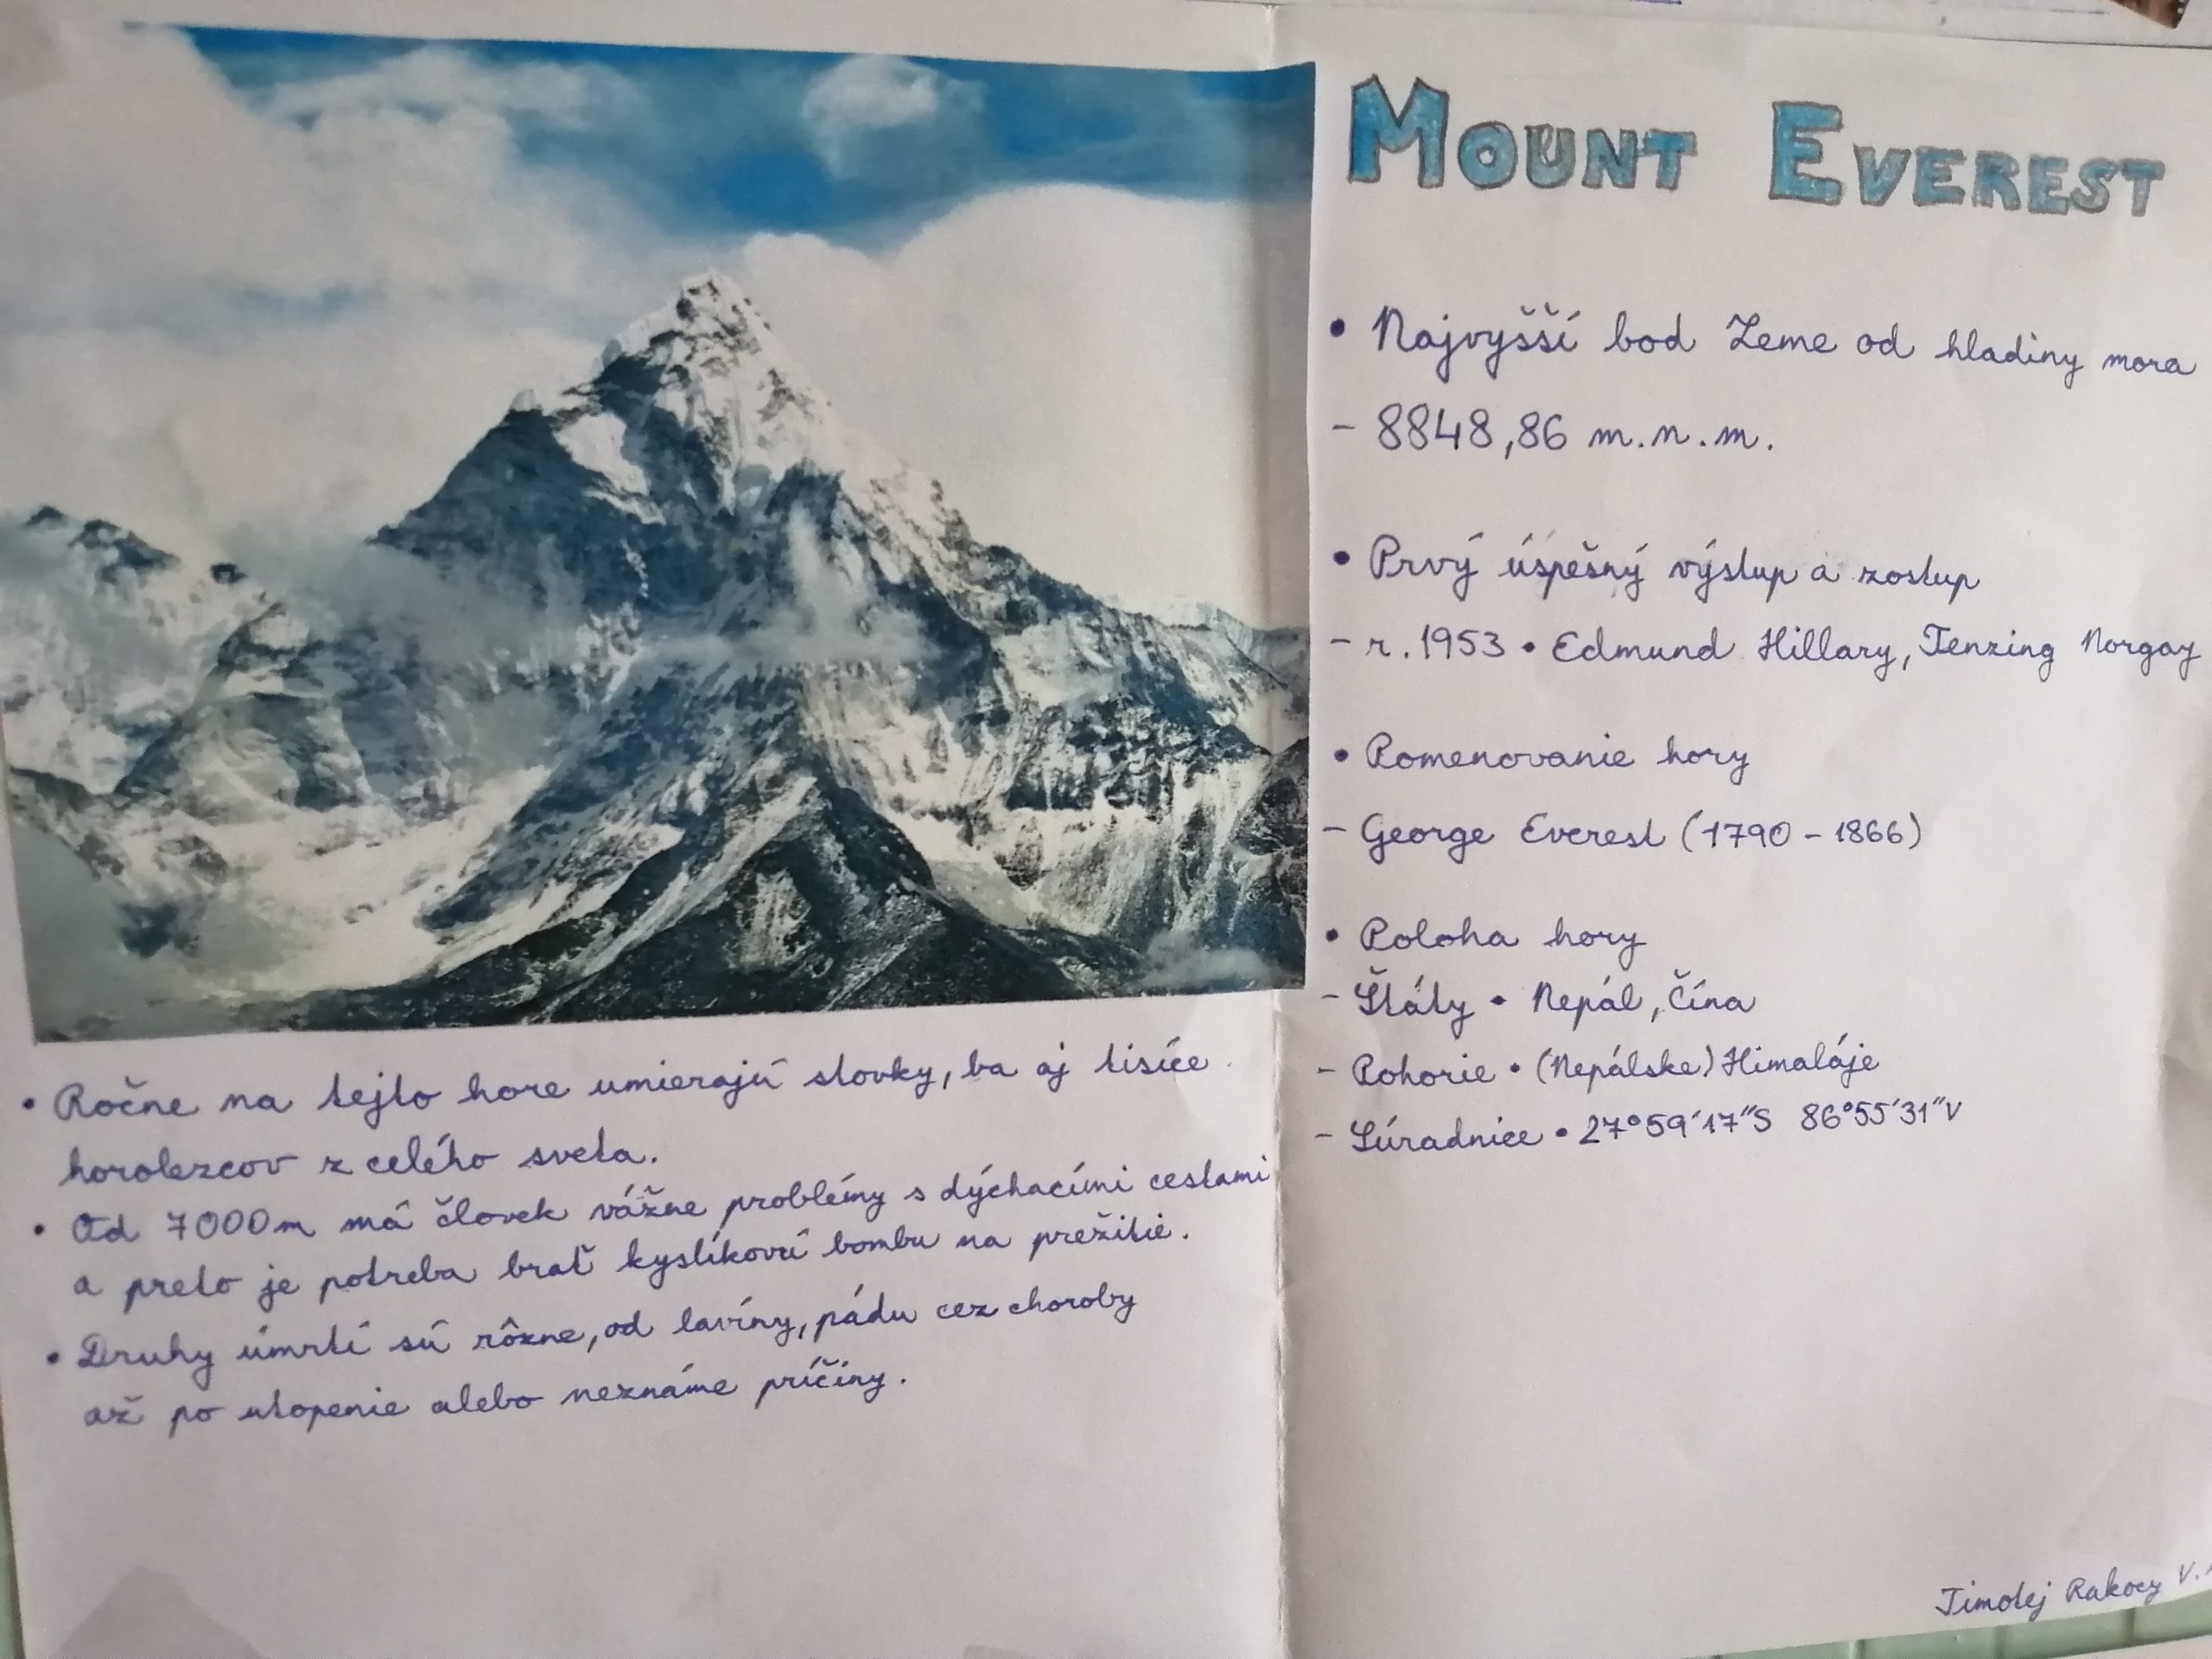 MOUNT EVEREST
• Najvyšší bod Zeme od hladiny mora
- 8848,86 m.n.m.
• Prvý úspešný výstup a zostup
- r. 1953 • Edmund Hillary, Tenzing Norgay
• Pomenovanie hory
- George Everest (1790 - 1866)
• Poloha hory
- Štáty • Nepál, Čína
- Pohorie • (Nepálske) Himaláje
- Súradnice • 27°59´17˝S 86°55´31˝V
• Ročne na tejto hore umierajú stovky, ba aj tisíce
horolezcov z celého sveta.
• Od 7000m má človek vážne problémy s dýchacími cestami
a preto je potreba brať kyslíkovú bombu na prežitie.
• Druhy úmrtí sú rôzne, od lavíny, pádu cez choroby
až po utopenie alebo neznáme príčiny.
Timotej Rakocy V.